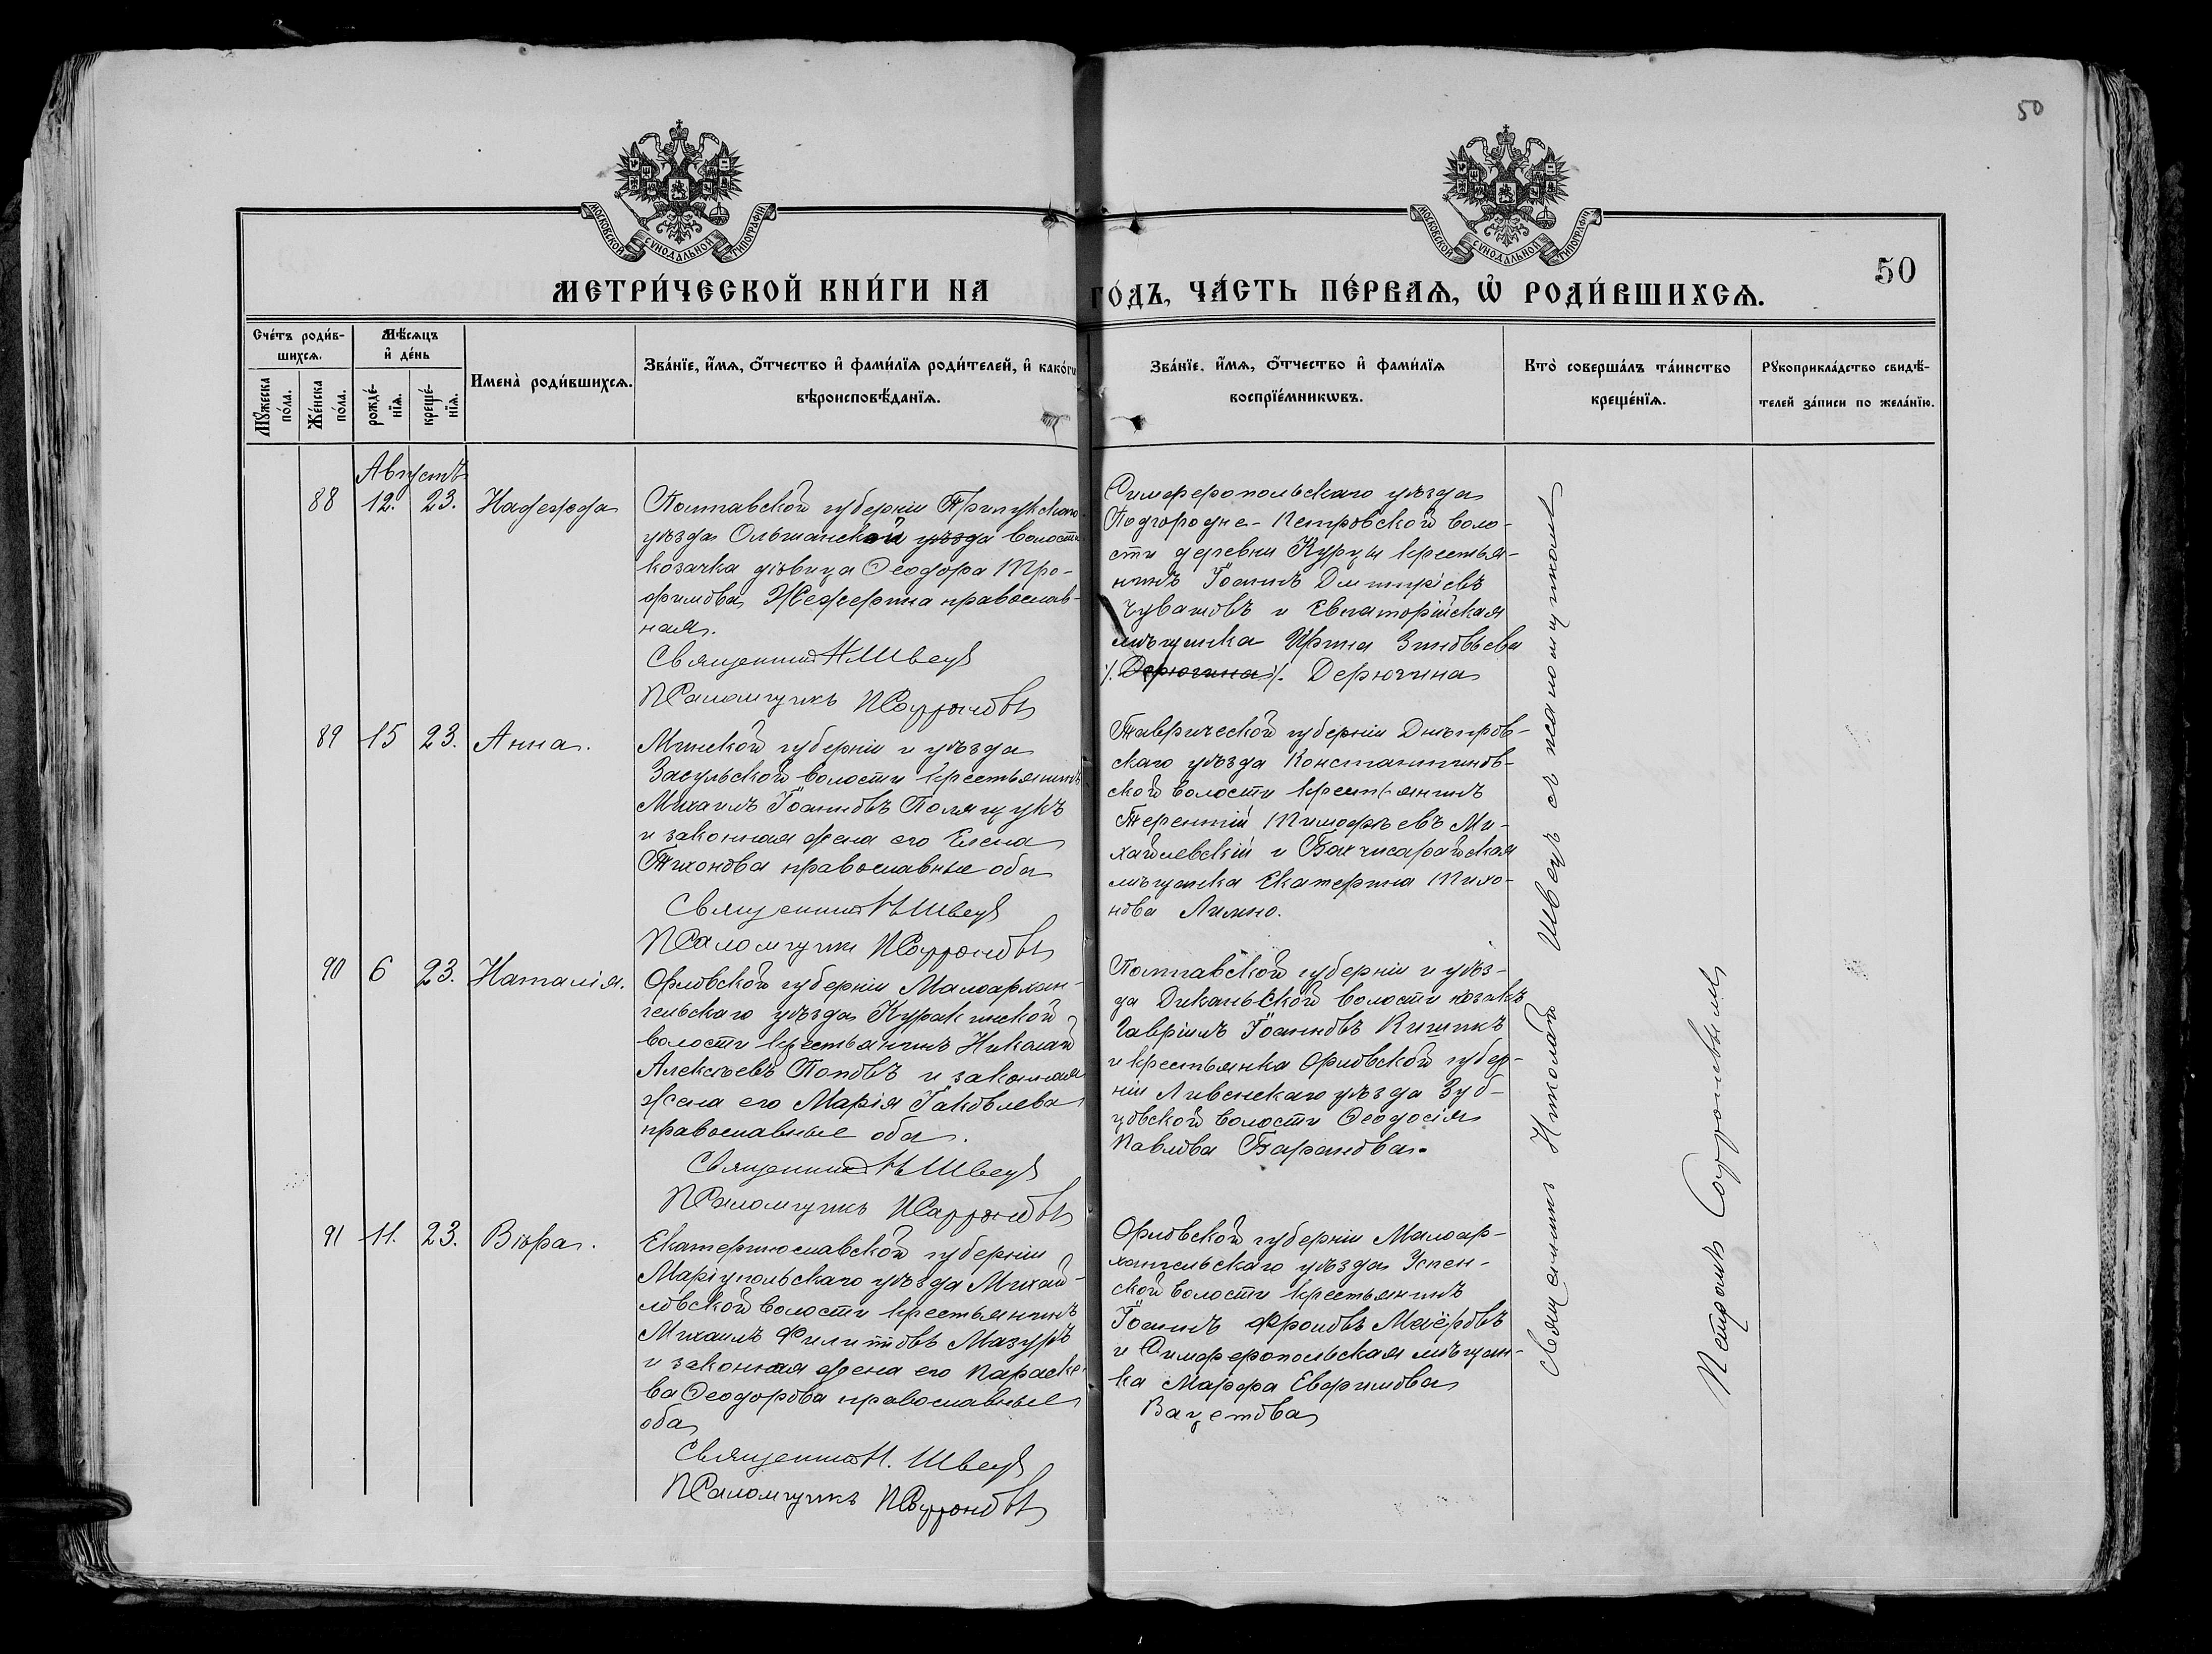 50
МОСКОВСКОЙ СѴНОДАЛЬНОЙ ТИПОГРАФІИ
МОСКОВСКОЙ СѴНОДАЛЬНОЙ ТИПОГРАФІИ
50
МЕТРИ́ЧЕСКОЙ КНИ́ГИ НА ГО́ДЪ, ЧА́СТЬ ПЕ́РВАѦ, Ѡ҆ РОДИ́ВШИХСѦ.
Сче́тъ роди́в-
шихсѧ.
Мꙋ́жеска
по́ла.
Же́нска
по́ла.
Мѣ́сѧцъ
и҆ де́нь
рожде́-
нїѧ.
креще́-
нїѧ.
Имена̀ роди́вшихсѧ.
Зва́нїе, и҆́мѧ, ѻ҆́тчество и҆ фами́лїѧ роди́телей, и҆ како́гw
вѣроисповѣ́данїѧ.
Зва́нїе, и҆́мѧ, ѻ҆́тчество и҆ фами́лїѧ
воспрїе́мникѡвъ.
Кто̀ соверша́лъ та́инство
креще́нїѧ.
Рꙋкоприкла́дство свидѣ́-
телей за́писи по жела́нїю.
Августъ
88 12. 23. Надежда
Полтавской губерніи Прилукскаго
уѣзда Ольшанской уѣзда волости
козачка дѣвица Ѳеодора Тро-
фимова Жежерина православ-
ная.
Священникъ Н Швецъ
Псаломщикъ П Софроновъ
Симферопольскаго уѣзда
Подгородне-Петровской воло-
сти деревни Курцы крестья-
нинъ Іоаннъ Димитріевъ
Чувашовъ и Евпаторійская
мѣщанка Ирина Зиновьева
/. Дерюгина /. Дерюгина
89 15 23. Анна.
Минской губерніи и уѣзда
Засульской волости крестьянинъ
Михаилъ Іоанновъ Полящукъ
и законная жена его Елена
Тихонова православные оба
Священникъ Н Швецъ
Псаломщикъ П Софроновъ
Таврической губерніи Днѣпров-
скаго уѣзда Константинов-
ской волости крестьянинъ
Терентій Тимофѣевъ Ми-
хайлевскій и Бахчисарайская
мѣщанка Екатерина Тихо-
нова Лимно.
90 6 23. Наталія.
Орловской губерніи Малоархан-
гельскаго уѣзда Куракинской
волости крестьянинъ Николай
Алексѣевъ Поповъ и законная
жена его Марія Іаковлева
православные оба.
Священникъ Н Швецъ
Псаломщикъ П Софроновъ
Полтавской губерніи и уѣз-
да Диканьской волости козакъ
Гавріилъ Іоанновъ Кишикъ
и крестьянка Орловской губер-
ніи Ливенскаго уѣзда Зуб-
цовской волости Ѳеодосія
Павлова Баранова.
91 11. 23. Вѣра.
Екатеринославской губерніи
Маріупольскаго уѣзда Михай-
ловской волости крестьянинъ
Михаилъ Филипповъ Мазуръ
и законная жена его Параске-
ва Ѳеодорова православные
оба
Священникъ Н. Швецъ
Псаломщикъ П Софроновъ
Орловской губерніи Малоар-
хангельскаго уѣзда Успен-
ской волости крестьянинъ
Іоаннъ Фроловъ
и Симферопольская мѣщан-
ка Марфа Евфимова
Священникъ Николай Швецъ съ псаломщикомъ
Петромъ Софроновымъ